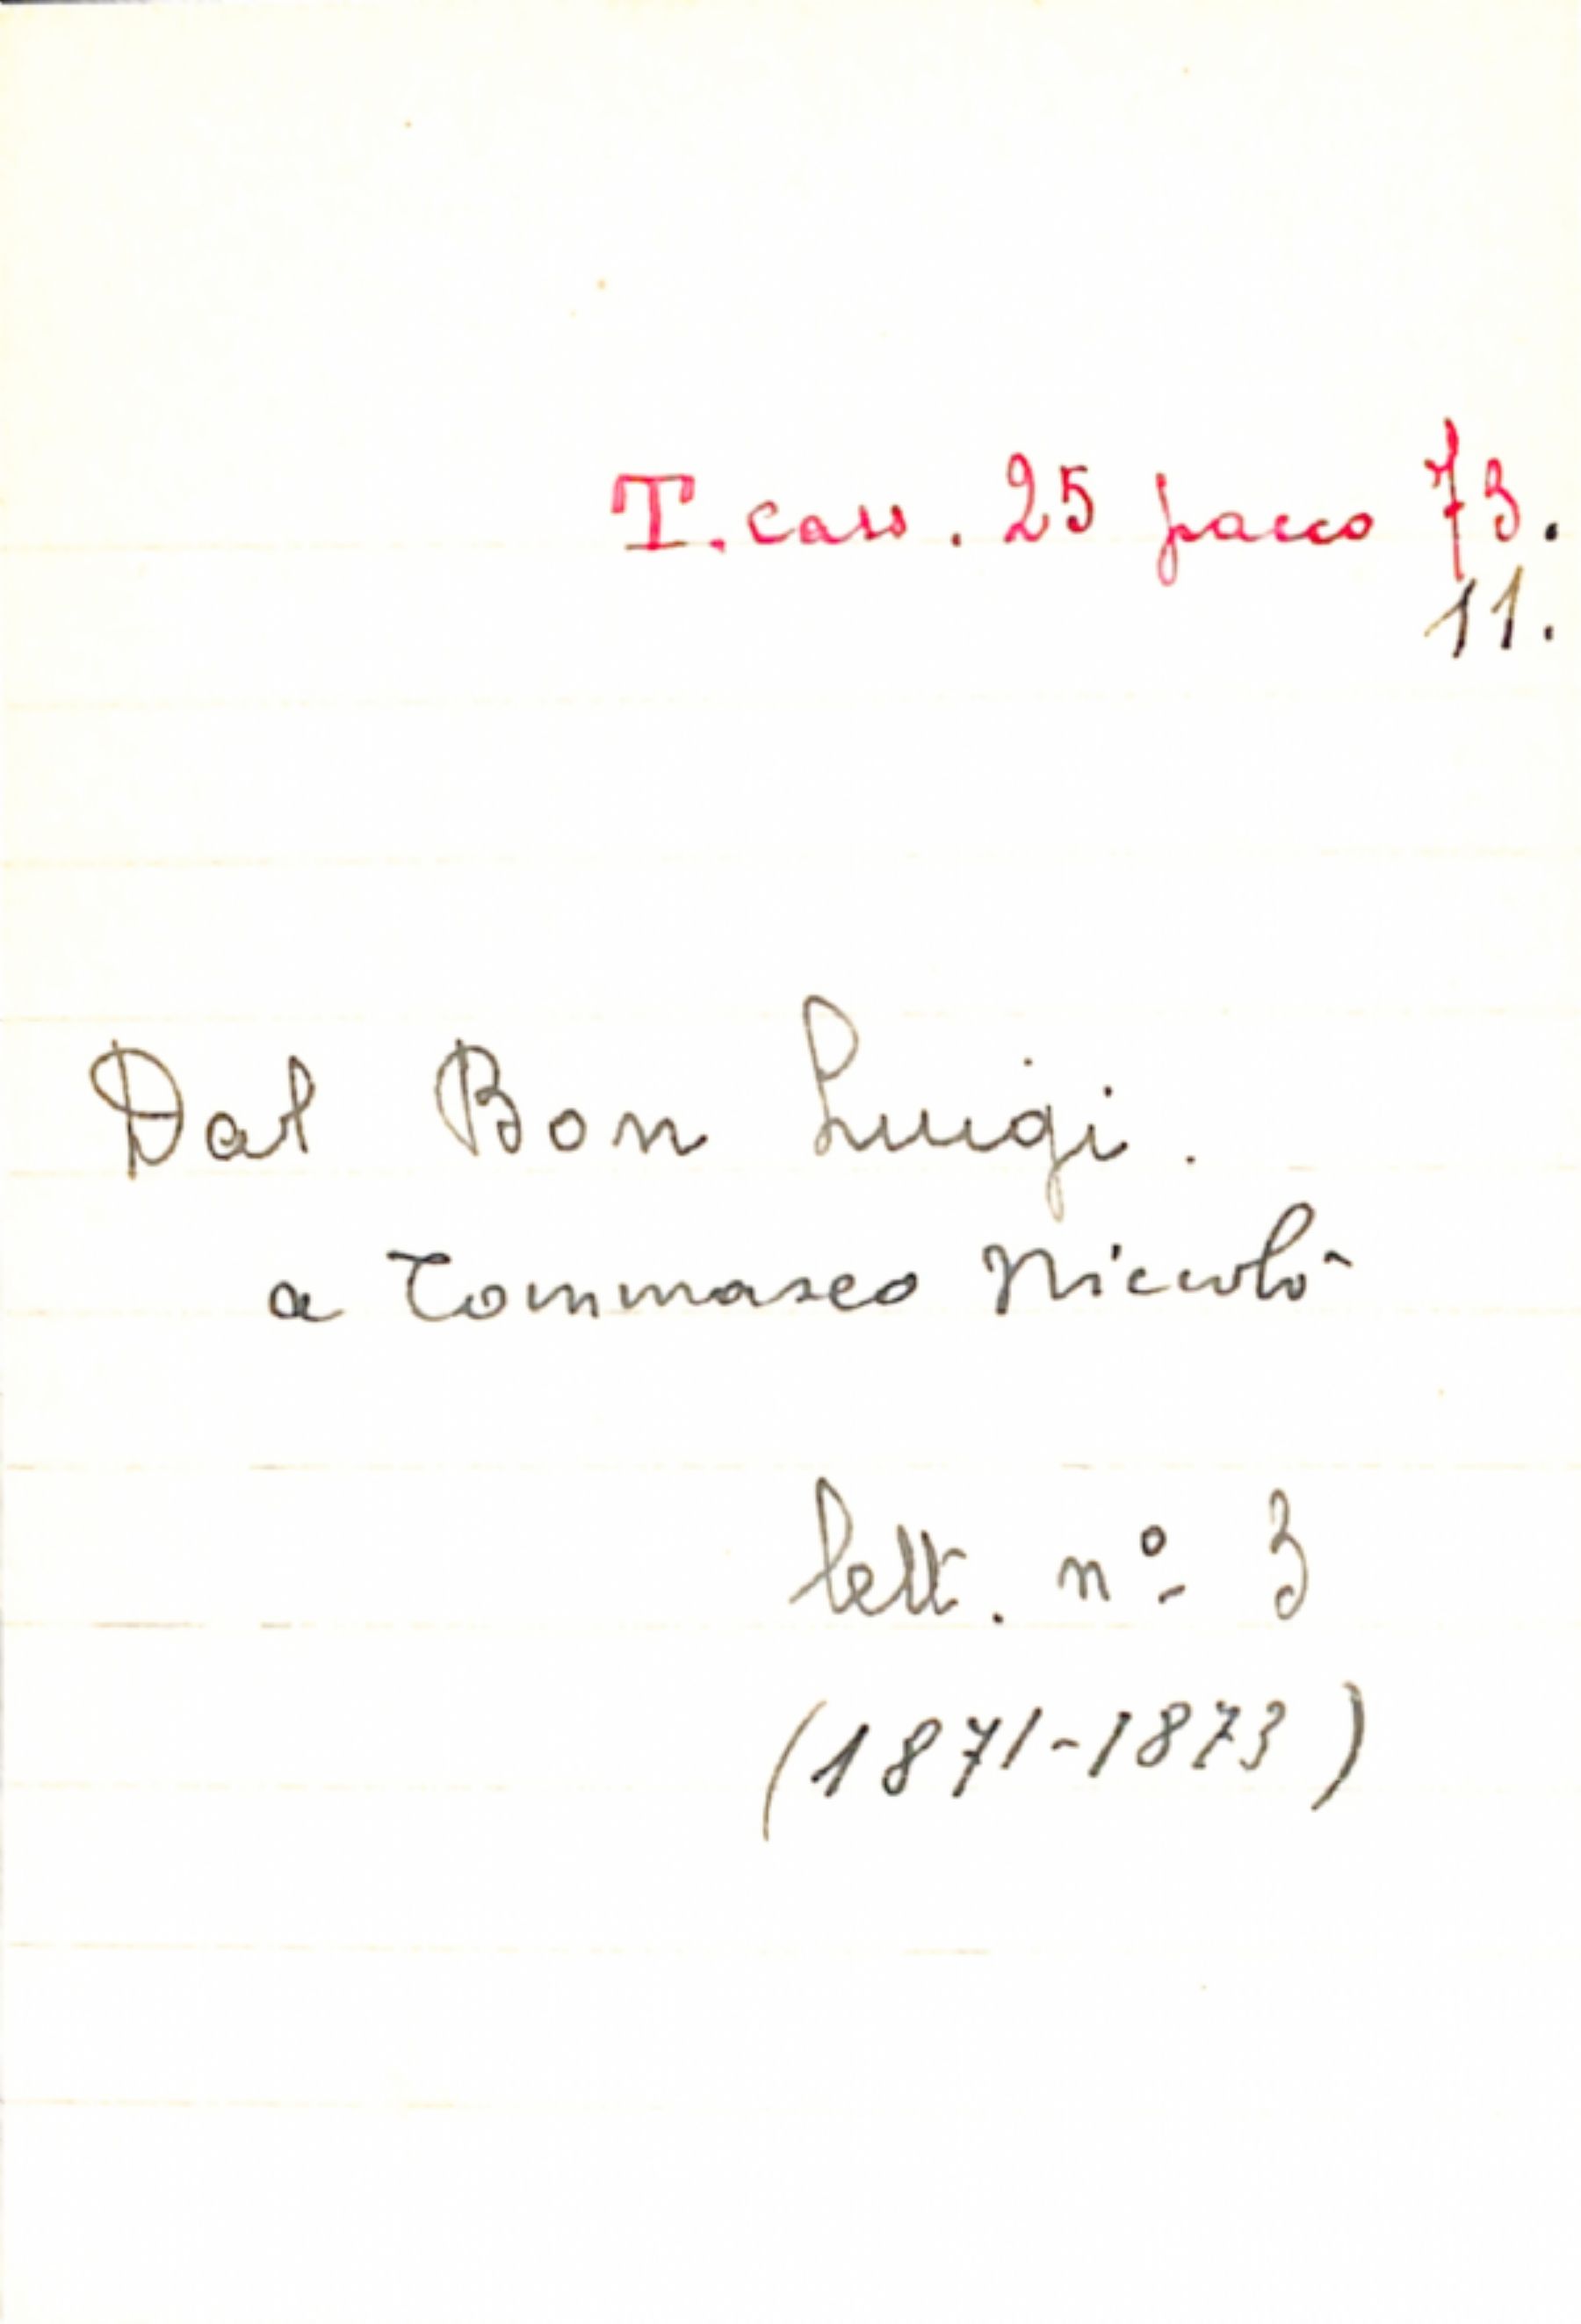 T. cass. 25 pacco 73.
11.
Dal Bon Luigi.
a Tommaseo Niccolò
lett. nº 3
(1871-1873)